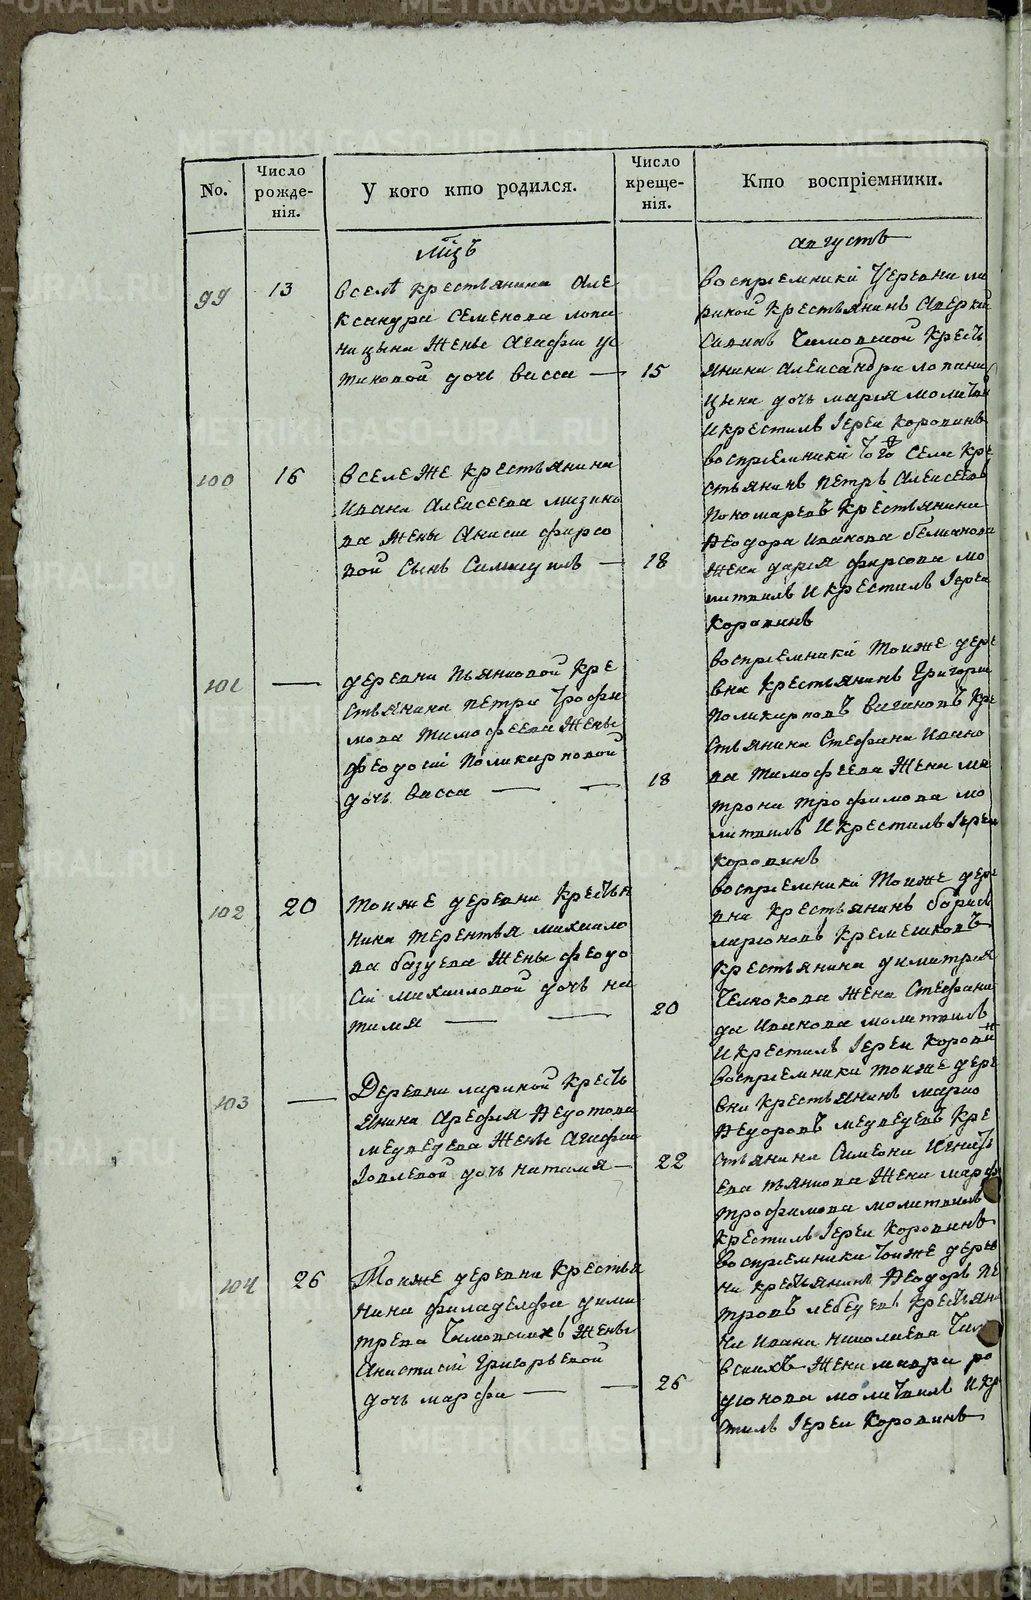 No.
Число рожде-нія.
У кого кто родился.
Число креще-нія.
Кто воспріємники.
мцъ
августъ
99
13
вселѣ крестьянина Але
ксандра Семенова лопа
ницына жены Агафьи ус
тиновой дочь Васса —
15
воспріемники деревни ла
риной крестьянинъ Аверкій
Савинъ Крестъ
янина Александра лопани
цына дочь марія молитвил
и крестилъ Іерей Коровинъ
100
16
вселе же крестьянина
Ивана Алексеева мизины
ва жены Анисьи фирсо
вой сынъ Самуилъ —
18
воспріемники того села кре
стьянинъ петръ Алексеевъ
пономаревъ крестьянина
Ѳеодора Иванова
жена дарія фирсова мо
литвилъ и крестилъ Іерей
Коровинъ
101
—
деревни пьянковой кре
стьянина петра Трофи
мова Тимофеева жены
феодосіи поликарповой
дочь Васса — —
18
воспріемники тоиже дере
вни крестьянинъ Григорій
поликарповъ Вагановъ кре
стьянина Стефана Ивано
ва Тимофеева жена ма
трона трофимова мо
литвилъ и крестилъ Іерей
Коровинъ
102
20
тоиже деревни крестья
нина терентья михаило
ва базуева жены феодо
сіи михаиловой дочь на
талія — —
20
воспріемники тоиже дере
вни крестьянинъ борисъ
ларионовъ кремешковъ
крестьянина димитрія
Челнокова жена Стефани
да Иванова молитвилъ
и крестилъ Іерей Коровинъ
103
—
Деревни лариной кресть
янина Арефья Ѳедотова
медведева жены Агафьи
Іовлевой дочь наталія —
22
воспріемники тоиже дере
вни крестьянинъ
Ѳедоровъ медведевъ кре
стьянина Симеона Игнать
ева пьянкова жена марфа
трофимова молитвилъ
крестилъ Іерей Коровинъ
104
26
Тоиже деревни крестья
нина филаделфа дими
трева жены
Анастасіи Григорьевой
дочь марфа — —
26
воспріемники тоиже дерев
ни крестьянинъ Ѳеодоръ пе
тровъ лебедевъ крестьян
на Ивана николаева
жена мавра ро
дионова молитвилъ и кре
стилъ Іерей Коровинъ
METRIKI.GASO-URAL.RU